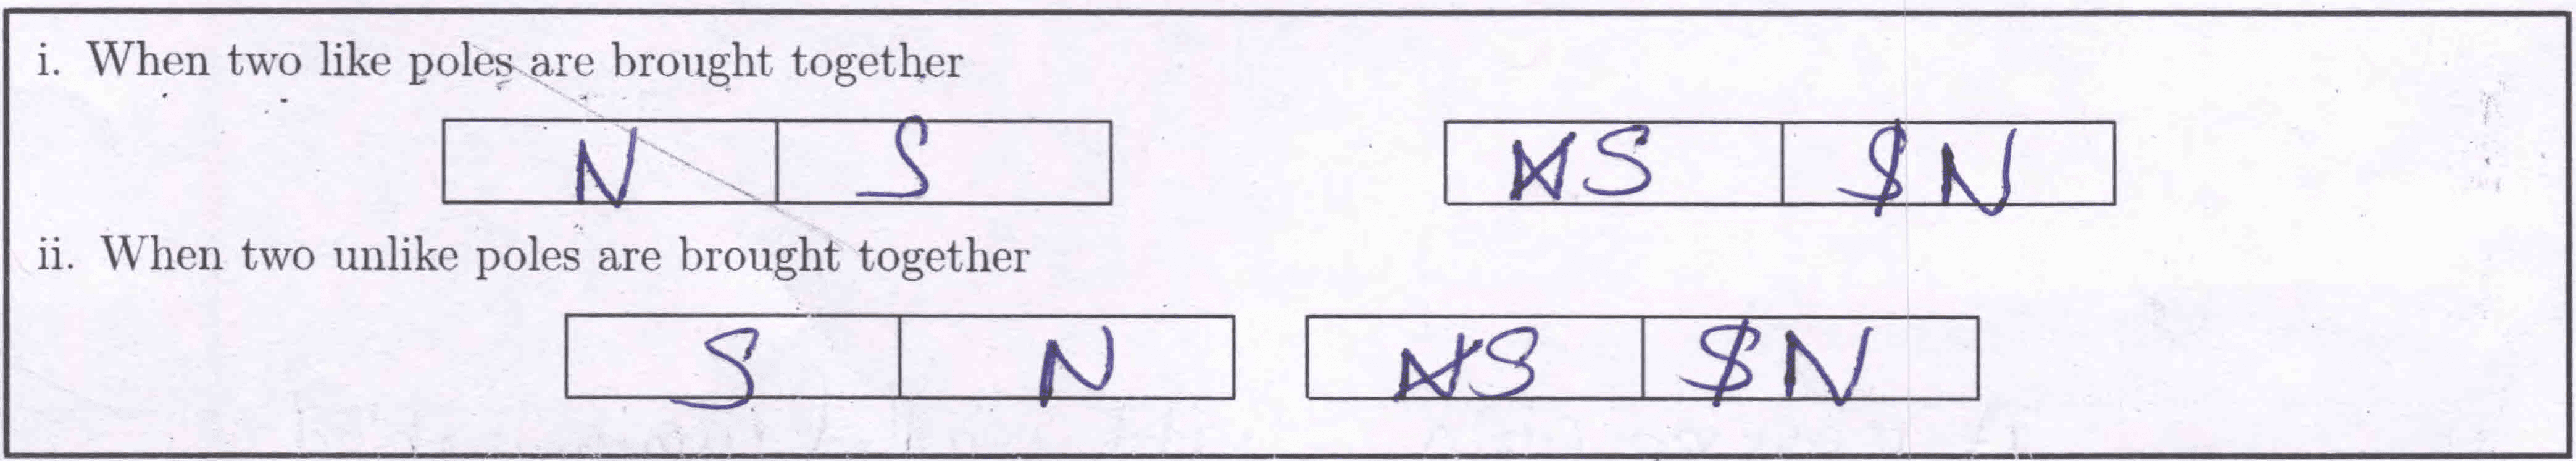 i. When two like poles are brought together
N S S N
ii. When two unlike poles are brought together
S N S N